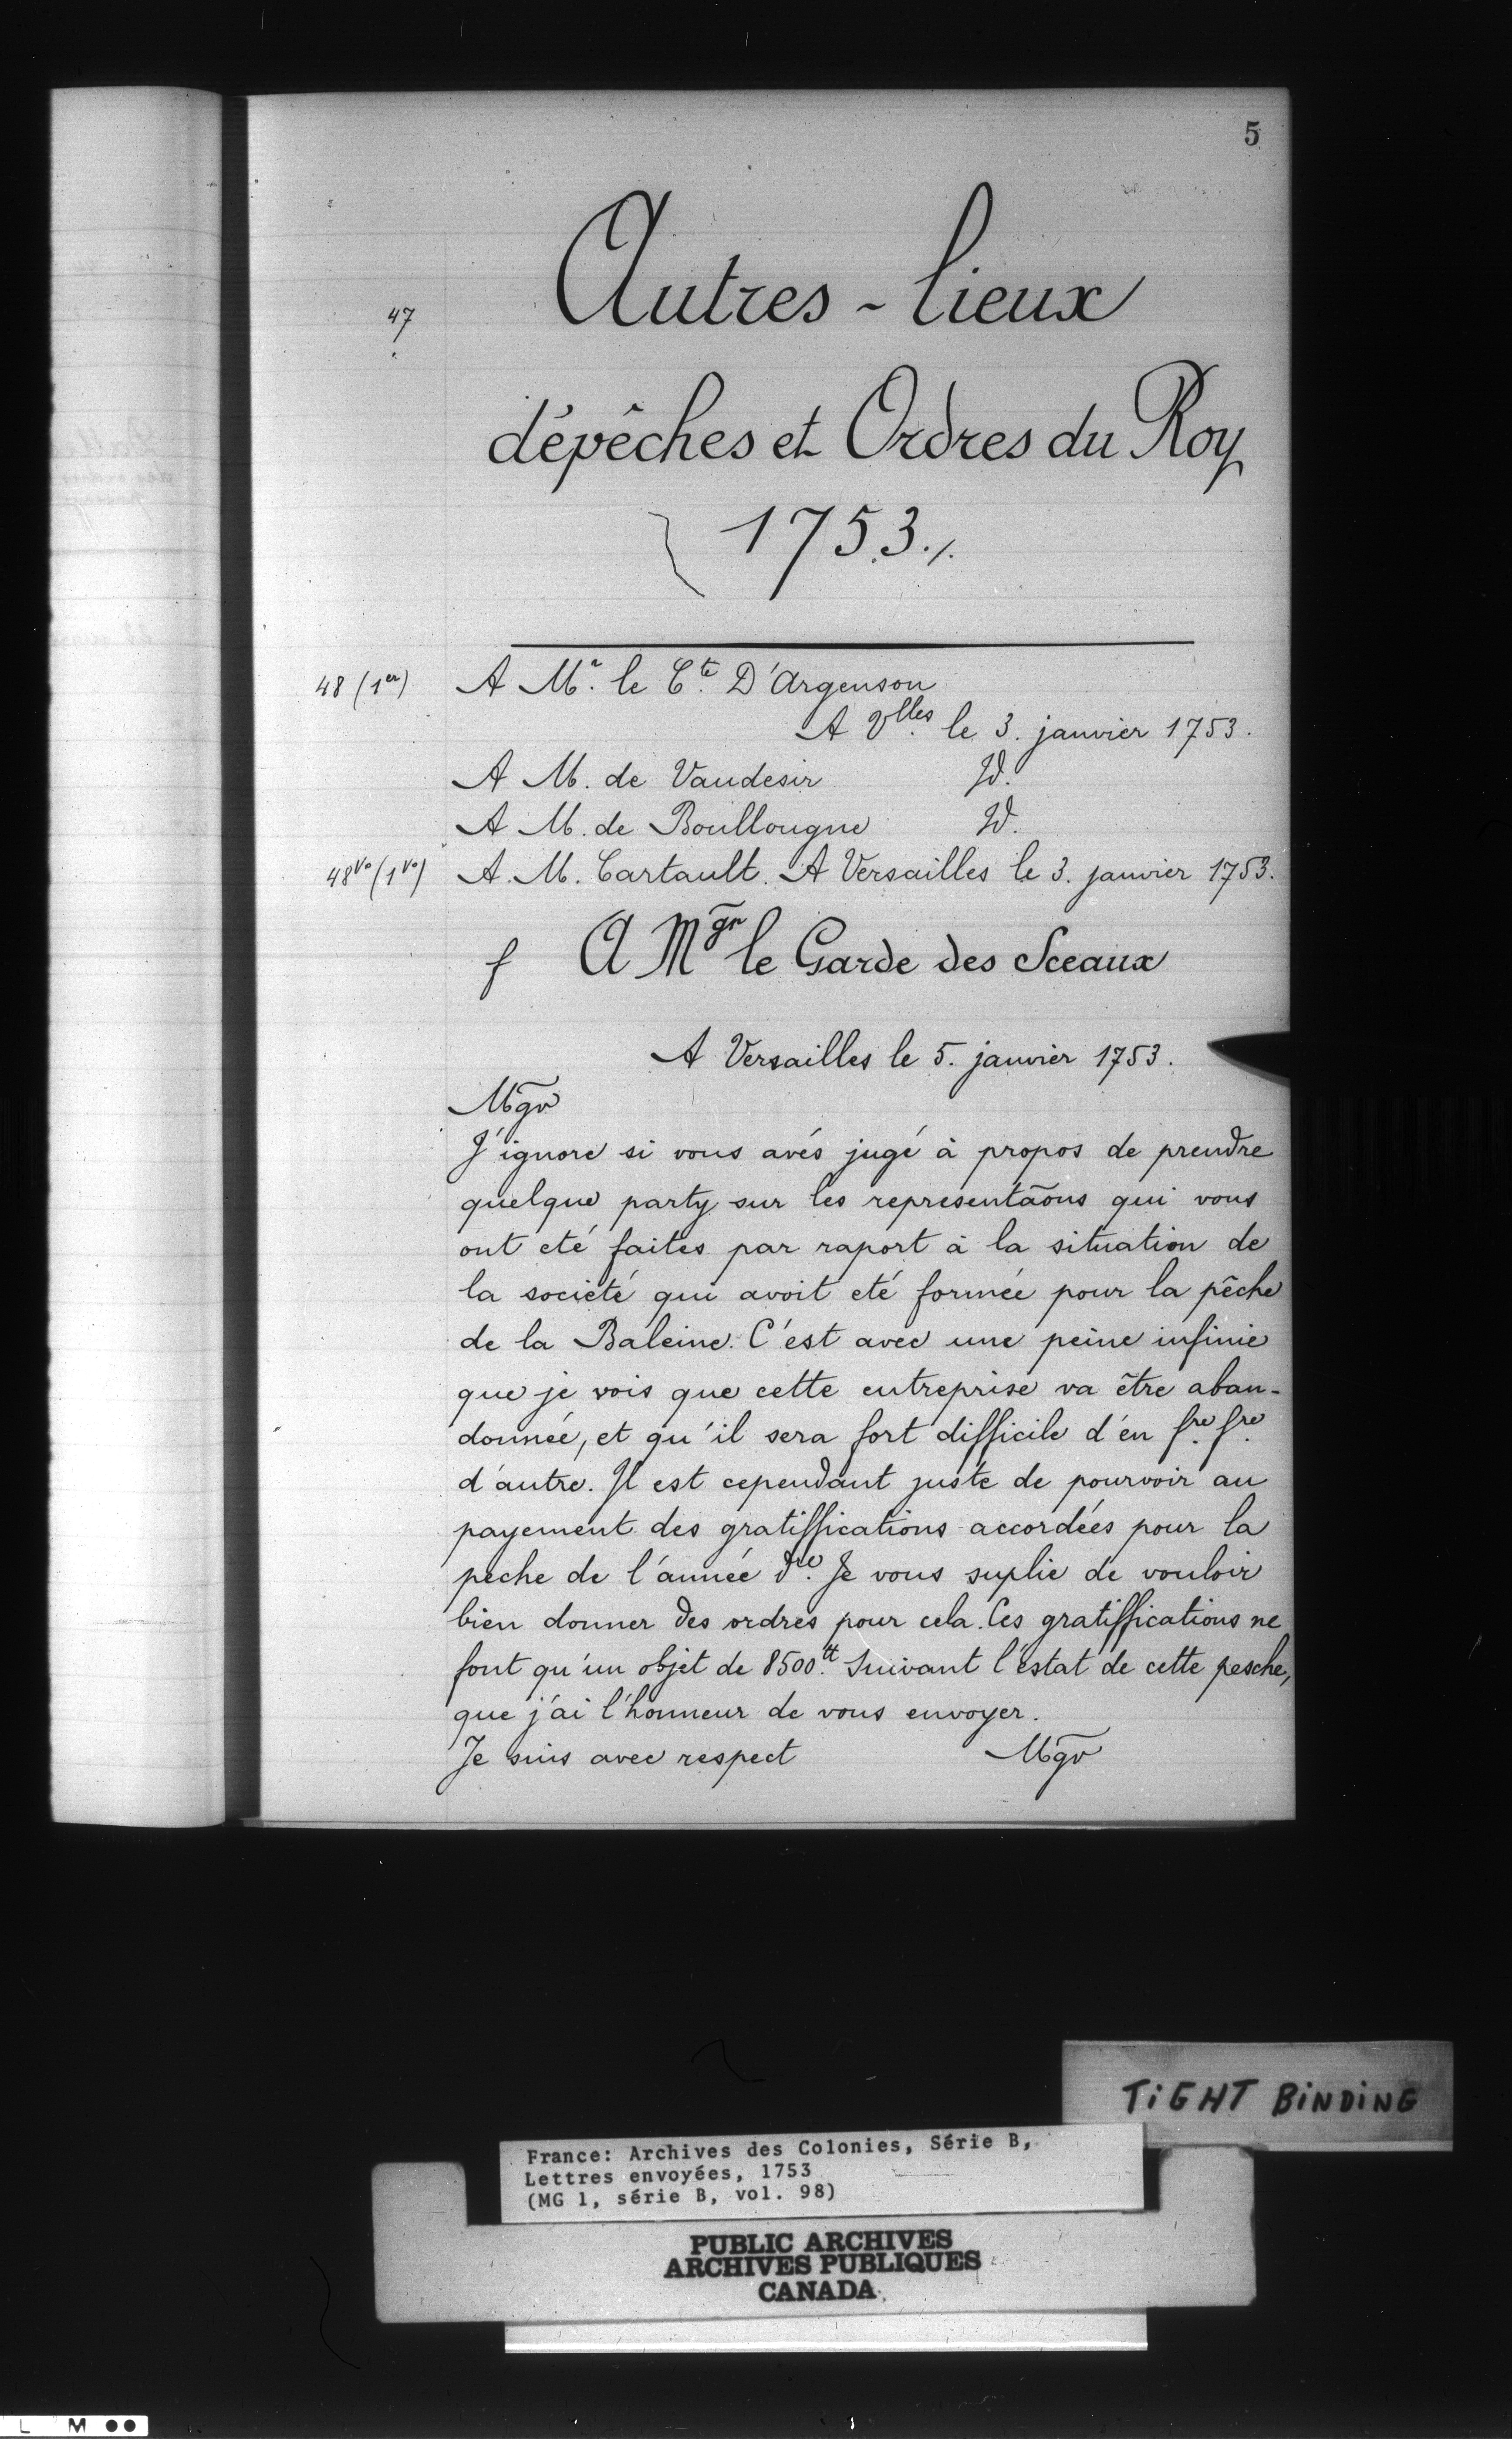 5
47
Autres - lieux
dépêches et Ordres du Roy
1753./.
48 (1er) A Mr. le Cte. D'Argenson
A Vlles. le 3. janvier 1753.
A M. de Vaudesir Id.
A M. de Boullougne Id.
48vo (1vo) A. M. Cartault. A Versailles le 3. janvier 1753.
f A Mgr le Garde des Sceaux
A Versailles le 5. janvier 1753.
Mgr
J'ignore si vous avés jugé à propos de prendre
quelque party sur les representãons qui vous
ont eté faites par raport à la situation de
la societé qui avoit eté formée pour la pêche
de la Baleine. C'est avec une peine infinie
que je vois que cette entreprise va être aban-
donnée, et qu'il sera fort difficile d'en fre. fre.
d'autre. Il est cependant juste de pourvoir au
payement des gratiffications accordées pour la
peche de l'année dre. Je vous suplie de vouloir
bien donner des ordres pour cela. Ces gratiffications ne
font qu'un objet de 8500.tt suivant l'estat de cette pesche,
que j'ai l'honneur de vous envoyer.
Je suis avec respect Mgr
TIGHT BINDING
France: Archives des Colonies, Série B,
Lettres envoyées, 1753
(MG 1, série B, vol. 98)
PUBLIC ARCHIVES
ARCHIVES PUBLIQUES
CANADA
L M